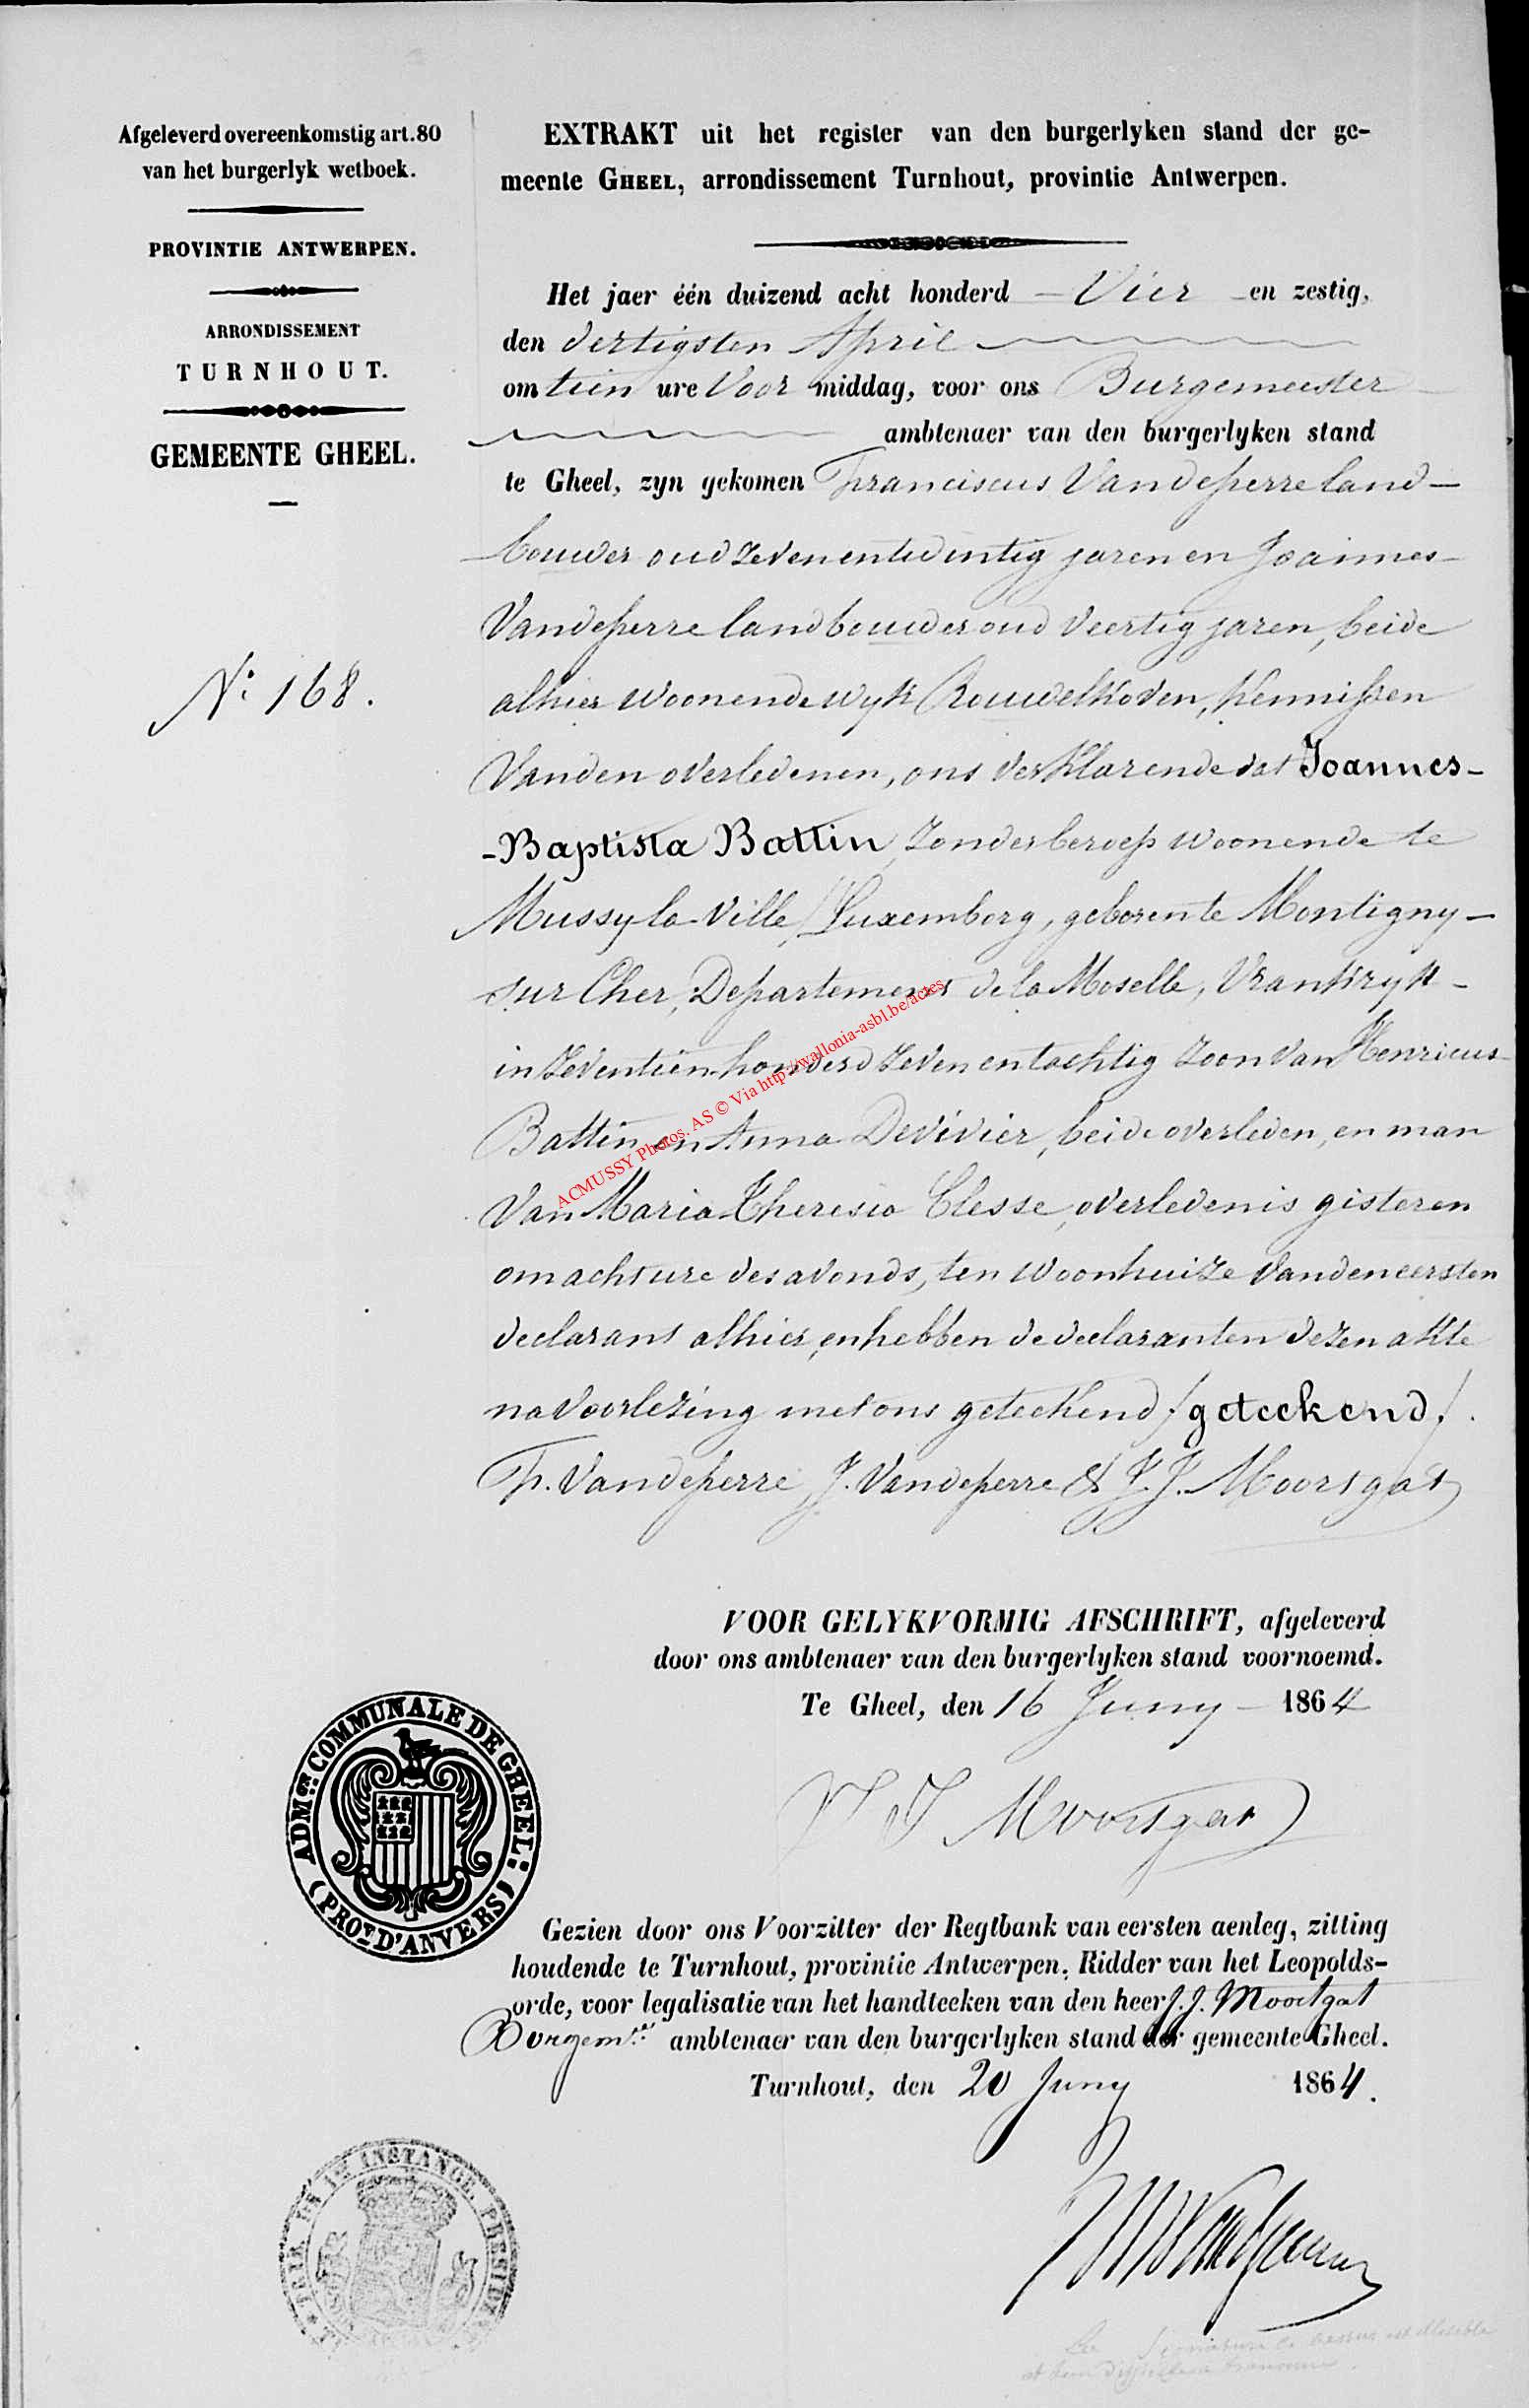 Afgeleverd overeenkomstig art. 80
van het burgerlyk wetboek.
PROVINTIE ANTWERPEN.
ARRONDISSEMENT
TURNHOUT.
GEMEENTE GHEEL.
N.º 168.
EXTRAKT uit het register van den burgerlyken stand der ge-
meente GHEEL, arrondissement Turnhout, provintie Antwerpen.
Het jaer één duizend acht honderd – Vier – en zestig,
den dertigsten April
om tien ure Voor middag, voor ons Burgemeester
ambtenaer van den burgerlyken stand
te Gheel, zyn gekomen Franciscus Vandeperre land-
bouwer oud zevenentwintig jaren en Joannes-
Vandeperre landbouwer oud veertig jaren, beide
alhier woonende wyk Rouwelkoven, kennissen
Vanden overledenen, ons verklarende dat Joannes-
-Baptista Battin, zonder beroep woonende te
Mussy-la-Ville, Luxemborg, geboren te Montigny-
sur Cher, Departement de la Moselle, Vrankryk -
in zeventienhonderd zevenentachtig zoon van Henricus
Battin en Anna Devivier, beide overleden, en man
Van Maria-Theresia Clesse, overleden is gisteren
om acht ure des avonds, ten woonhuize van den eersten
declarant alhier, en hebben de declaranten dezen akte
na voorlezing met ons geteekend / geteekend /.
Fr. Vandeperre, J. Vandeperre & J. J. Moortgat
VOOR GELYKVORMIG AFSCHRIFT, afgeleverd
door ons ambtenaer van den burgerlyken stand voornoemd.
Te Gheel, den 16 Juny – 1864
J J Moortgat
ADMON COMMUNALE DE GHEEL.
(PROV. D'ANVERS)
Gezien door ons Voorzitter der Regtbank van eersten aenleg, zitting
houdende te Turnhout, provintie Antwerpen, Ridder van het Leopolds-
orde, voor legalisatie van het handteeken van den heer J. J. Moortgat
Borgemter ambtenaer van den burgerlyken stand der gemeente Gheel.
Turnhout, den 20 Juny 1864.
TRIB. DE 1RE INSTANCE. PRESIDT
ACMUSSY Photos. AS © Via http://wallonia-asbl.be/actes